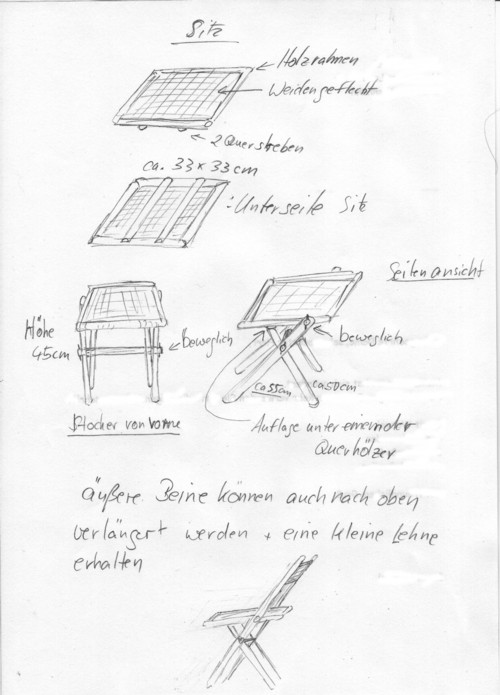 Sitz
Holzrahmen
Weidengeflecht
2 Querstreben
ca. 33 x 33 cm
: Unterseite Sitz
Seitenansicht
Höhe
45cm
Beweglich
beweglich
ca 55cm
ca 50cm
Hocker von vorne
Auflage unter einem der
Querhölzer
äußere Beine können auch nach oben
verlängert werden + eine kleine Lehne
erhalten